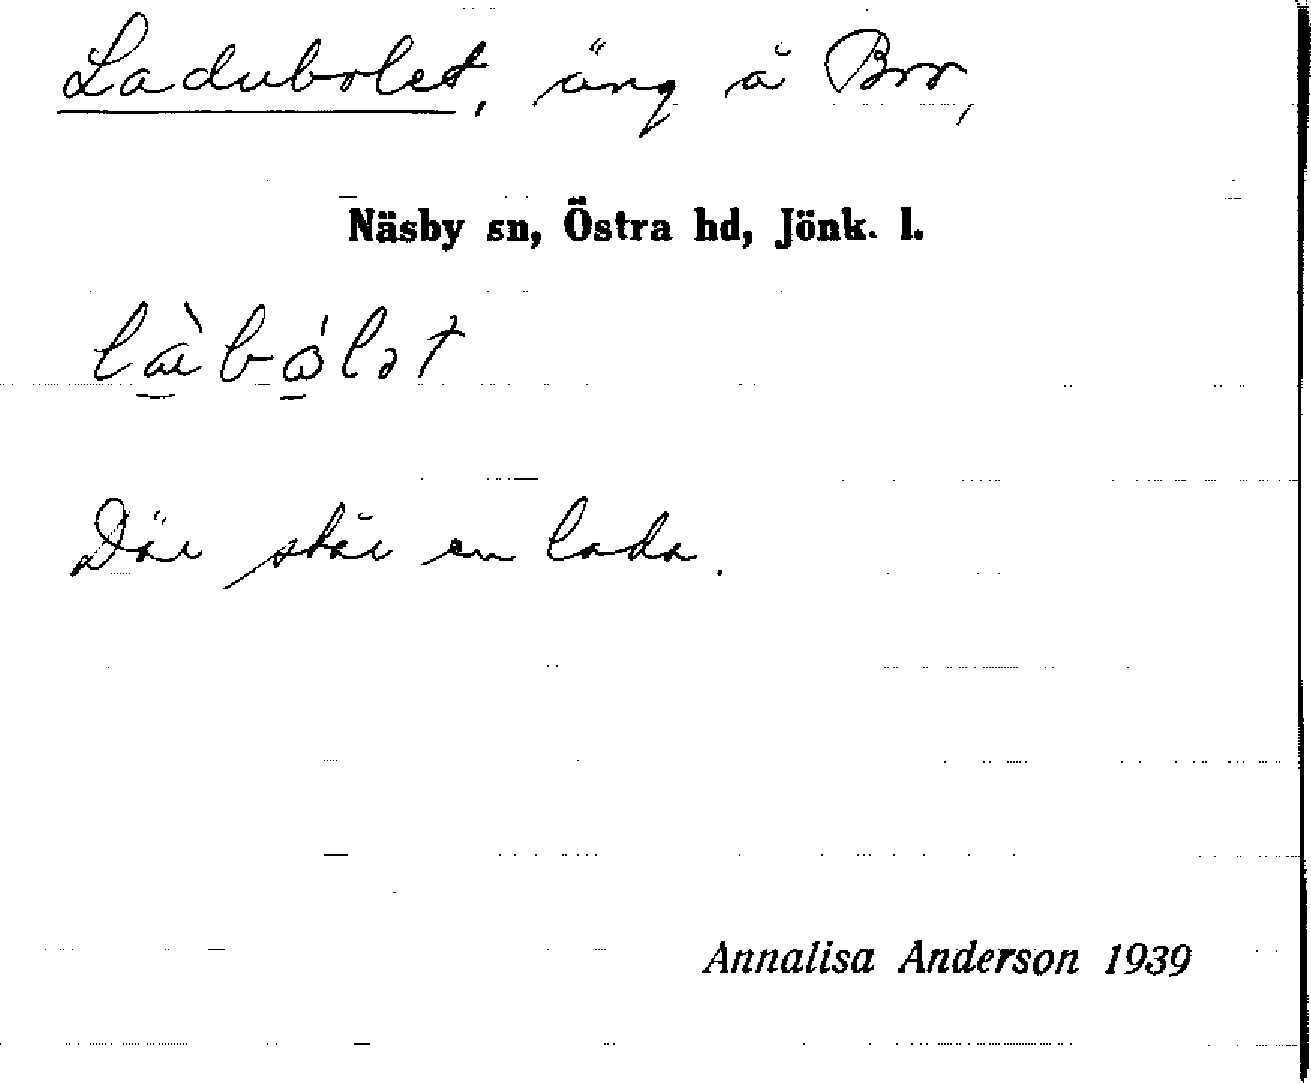 Ladubolet, äng å Bro,
Näsby sn, Östra hd, Jönk. l.
Där står en lada.
Annalisa Anderson 1939